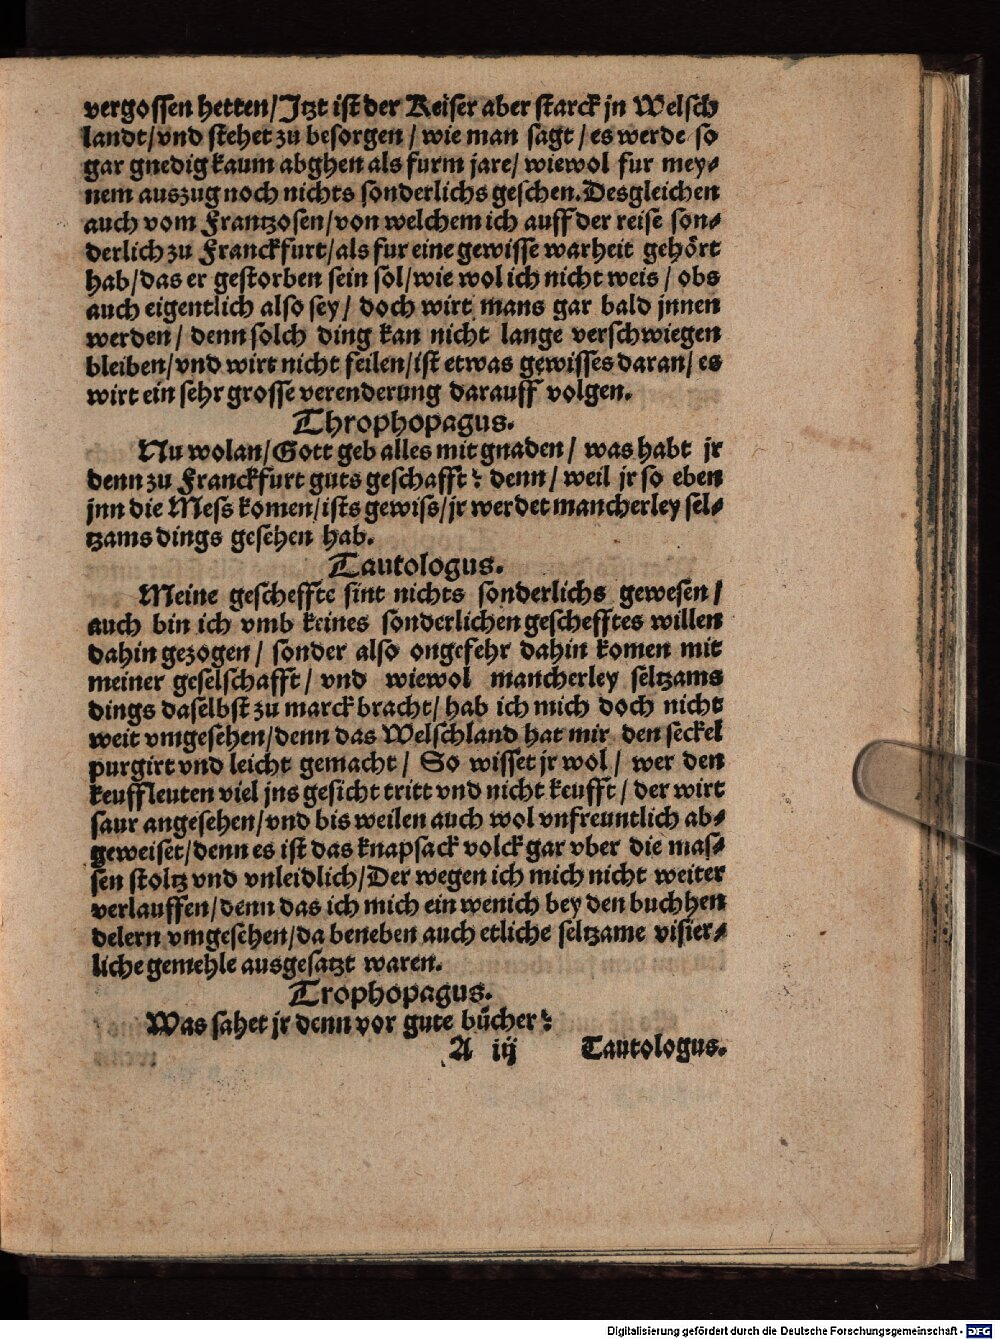 vergossen hetten/Jtzt ist der Keiser aber starck jn Welsch
landt/vnd stehet zu besorgen / wie man sagt / es werde so
gar gnedig kaum abghen als furm jare/ wiewol fur mey⸗
nem auszug noch nichts sonderlichs geschen. Desgleichen
auch vom Frantzosen/von welchem ich auff der reise son⸗
derlich zu Franckfurt/als fur eine gewisse warheit gehört
hab/das er gestorben sein sol/wie wol ich nicht weis / obs
auch eigentlich also sey / doch wirt mans gar bald jnnen
werden / denn solch ding kan nicht lange verschwiegen
bleiben/vnd wirt nicht feilen/ist etwas gewisses daran/ es
wirt ein sehr grosse verenderung darauff volgen.
Throphopagus.
Nu wolan/Gott geb alles mit gnaden / was habt jr
denn zu Franckfurt guts geschafft? denn/ weil jr so eben
jnn die Mess komen/ists gewiss/jr werdet mancherley sel⸗
tzams dings gesehen hab.
Tautologus.
Meine gescheffte sint nichts sonderlichs gewesen/
auch bin ich vmb keines sonderlichen geschefftes willen
dahin gezogen / sonder also ongefehr dahin komen mit
meiner geselschafft / vnd wiewol mancherley seltzams
dings daselbst zu marck bracht/ hab ich mich doch nicht
weit vmgesehen/denn das Welschland hat mir den seckel
purgirt vnd leicht gemacht / So wisset jr wol / wer den
keuffleuten viel jns gesicht tritt vnd nicht keufft / der wirt
saur angesehen/vnd bis weilen auch wol vnfreuntlich ab⸗
geweiset/denn es ist das knapsack volck gar vber die mas⸗
sen stoltz vnd vnleidlich/Der wegen ich mich nicht weiter
verlauffen/denn das ich mich ein wenich bey den buchhen
delern vmgesehen/da beneben auch etliche seltzame visier⸗
liche gemehle ausgesatzt waren.
Trophopagus.
Was sahet jr denn vor gute bücher?
A iij Tautologus.
Digitalisierung gefördert durch die Deutsche Forschungsgemeinschaft - DFG